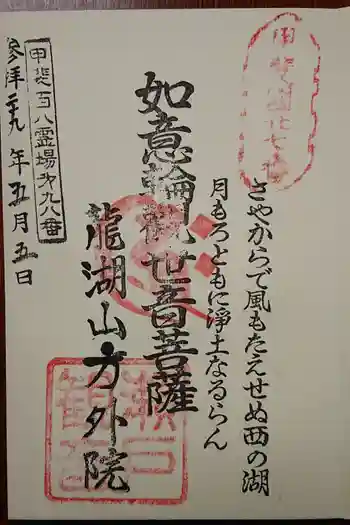 さやからで風もたえせぬ西の湖
月もろともに淨土なるらん
如意輪観世音菩薩
龍湖山方外院
甲斐百八霊場第九八番
参拝二十九年五月五日